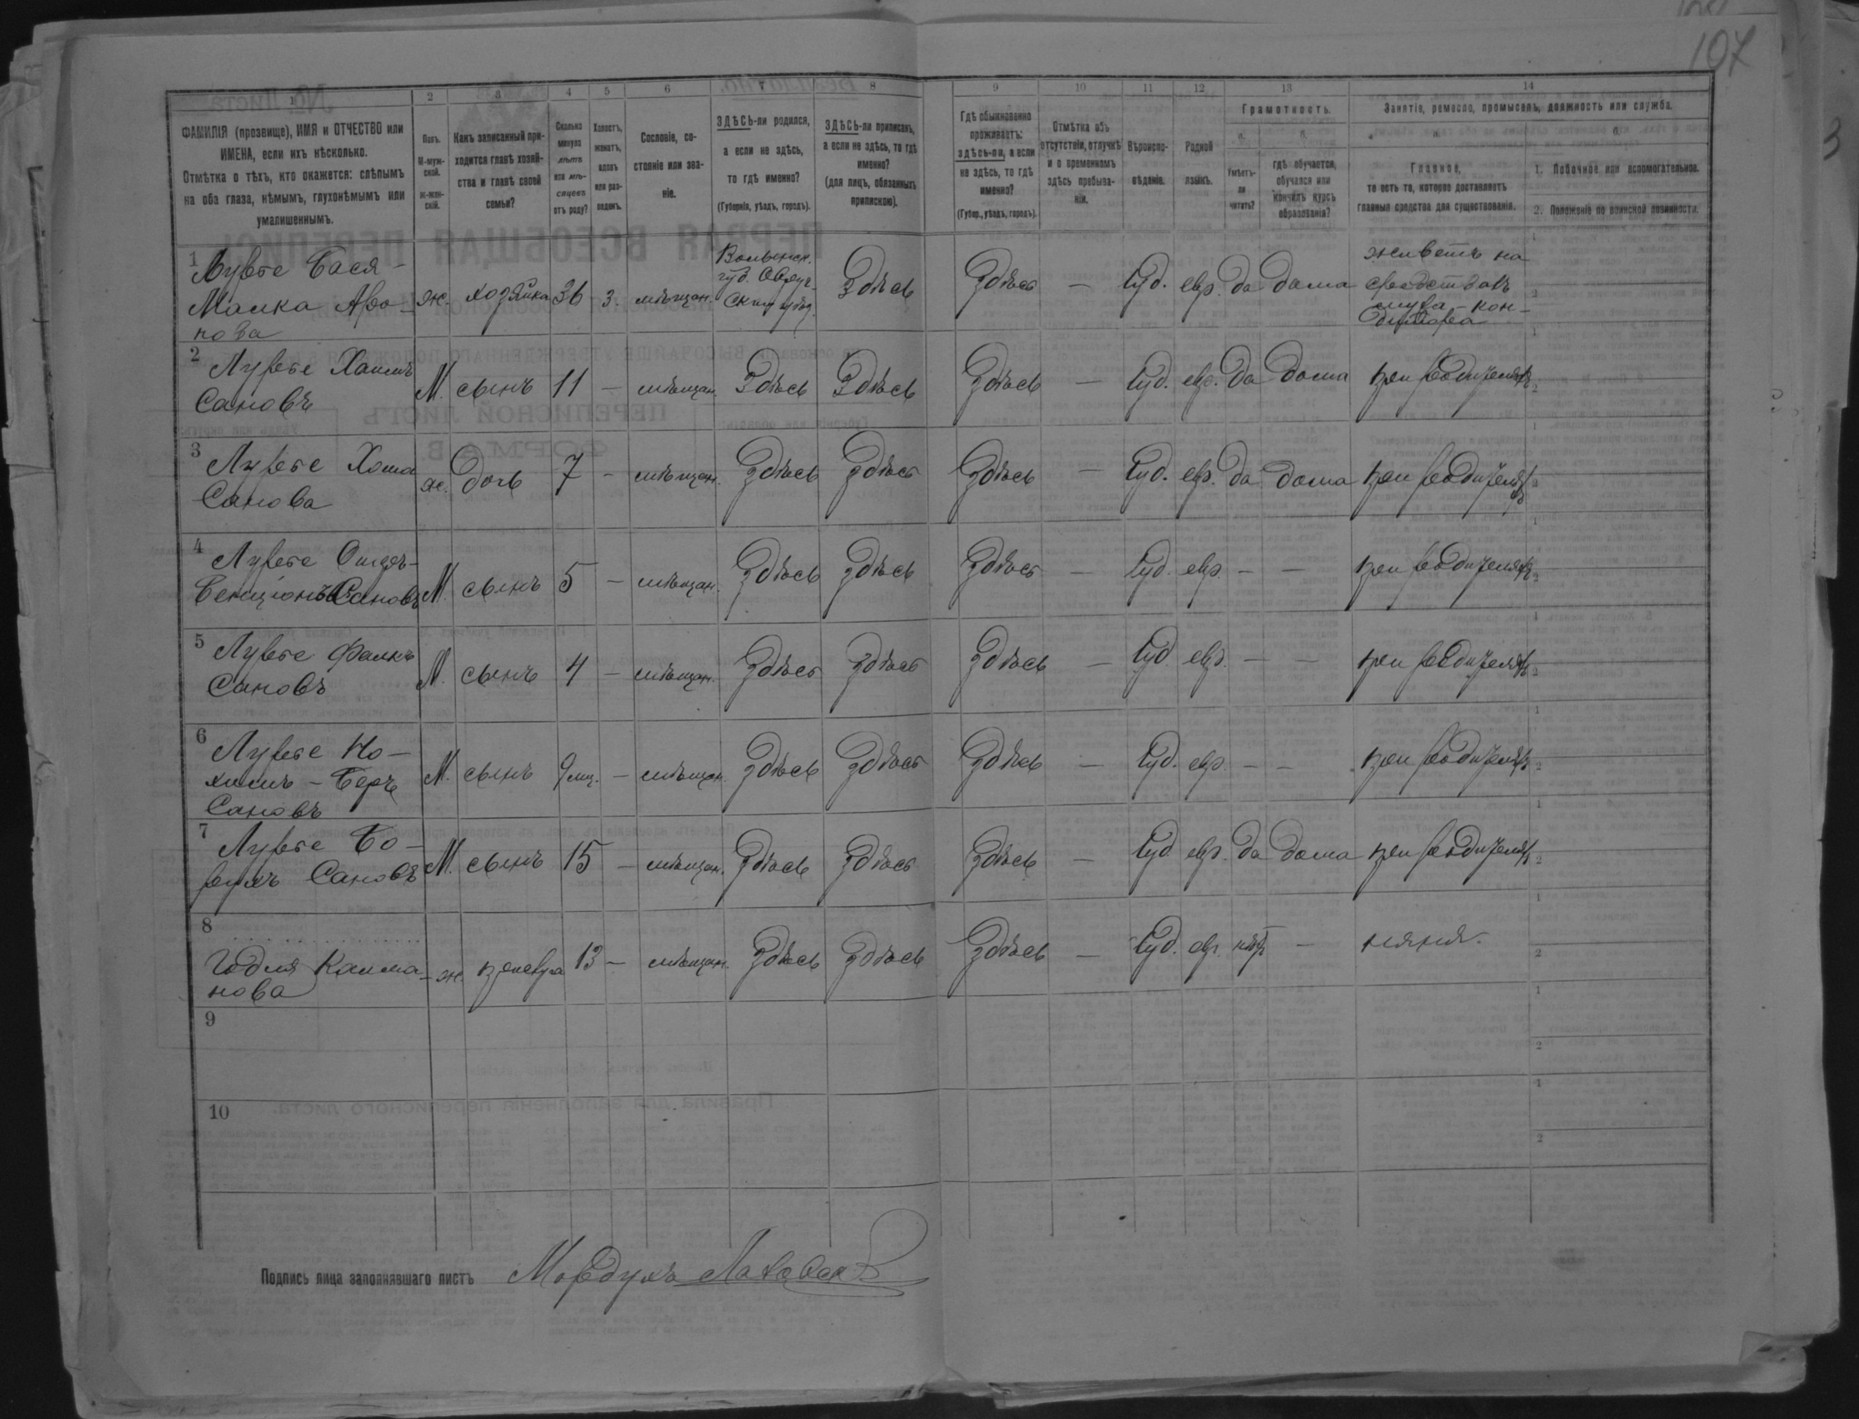 107
1 2 3 4 5 6 7 8 9 10 11 12 13 14
ФАМИЛІЯ (прозвище), ИМЯ и ОТЧЕСТВО или
ИМЕНА, если ихъ нѣсколько.
Отмѣтка о тѣхъ, кто окажется: слѣпымъ
на оба глаза, нѣмымъ, глухонѣмымъ или
умалишеннымъ.
Полъ.
М-муж-
ской.
Ж-жен-
скій.
Какъ записанный при-
ходится главѣ хозяй-
ства и главѣ своей
семьи?
Сколько
минуло
лѣтъ
или мѣ-
сяцевъ
отъ роду?
Холостъ,
женатъ,
вдовъ
или раз-
веденъ.
Сословіе, со-
стояніе или зва-
ніе.
ЗДѢСЬ-ли родился,
а если не здѣсь,
то гдѣ именно?
(Губернія, уѣздъ, городъ).
ЗДѢСЬ-ли приписанъ,
а если не здѣсь, то гдѣ
именно?
(для лицъ, обязанныхъ
припискою).
Гдѣ обыкновенно
проживаетъ:
здѣсь-ли, а если
не здѣсь, то гдѣ
именно?
(Губер., уѣздъ, городъ).
Отмѣтка объ
отсутствіи, отлучкѣ
и о временномъ
здѣсь пребыва-
ніи.
Вѣроиспо-
вѣданіе.
Родной
языкъ.
Грамотность.
а. б.
Умѣетъ-
ли
читать?
гдѣ обучается,
обучался или
кончилъ курсъ
образованія?
Занятіе, ремесло, промыселъ, должность или служба.
а. б.
Главное,
то есть то, которое доставляетъ
главныя средства для существованія.
1. Побочное или вспомогательное.
2. Положеніе по воинской повинности.
1 Лурье Бася-
Малка Аро-
нова
ж. хозяйка 36 з. мѣщан.
Волынск.
губ. Овруч-
скій уѣзд.
Здѣсь Здѣсь — Іуд. евр. да дома
живетъ на
средства
мужа - кон-
дитора
2 Лурье Хаимъ
Сановъ
М. сынъ 11 — мѣщан. Здѣсь Здѣсь Здѣсь — Іуд. евр. да дома при родителяхъ
3 Лурье Хома
Санова
ж. дочь 7 — мѣщан. Здѣсь Здѣсь Здѣсь — Іуд. евр. да дома при родителяхъ
4 Лурье
Бенціонъ Сановъ
М. сынъ 5 — мѣщан. Здѣсь Здѣсь Здѣсь — Іуд. евр — — при родителяхъ
5 Лурье Фалкъ
Сановъ
М. сынъ 4 — мѣщан. Здѣсь Здѣсь Здѣсь — Іуд евр. — — при родителяхъ
6 Лурье Но-
химъ - Беръ
Сановъ
М. сынъ 9 мц. — мѣщан. Здѣсь Здѣсь Здѣсь — Іуд. евр. — — при родителяхъ
7 Лурье Бо-
рухъ Сановъ
М. сынъ 15 — мѣщан. Здѣсь Здѣсь Здѣсь — Іуд евр. да дома при родителяхъ
8
Годля Калма-
нова
ж. прислуга 13 — мѣщан. Здѣсь Здѣсь Здѣсь — Іуд. евр. нѣтъ — няня.
9
10
Подпись лица заполнявшаго листъ Мордухъ